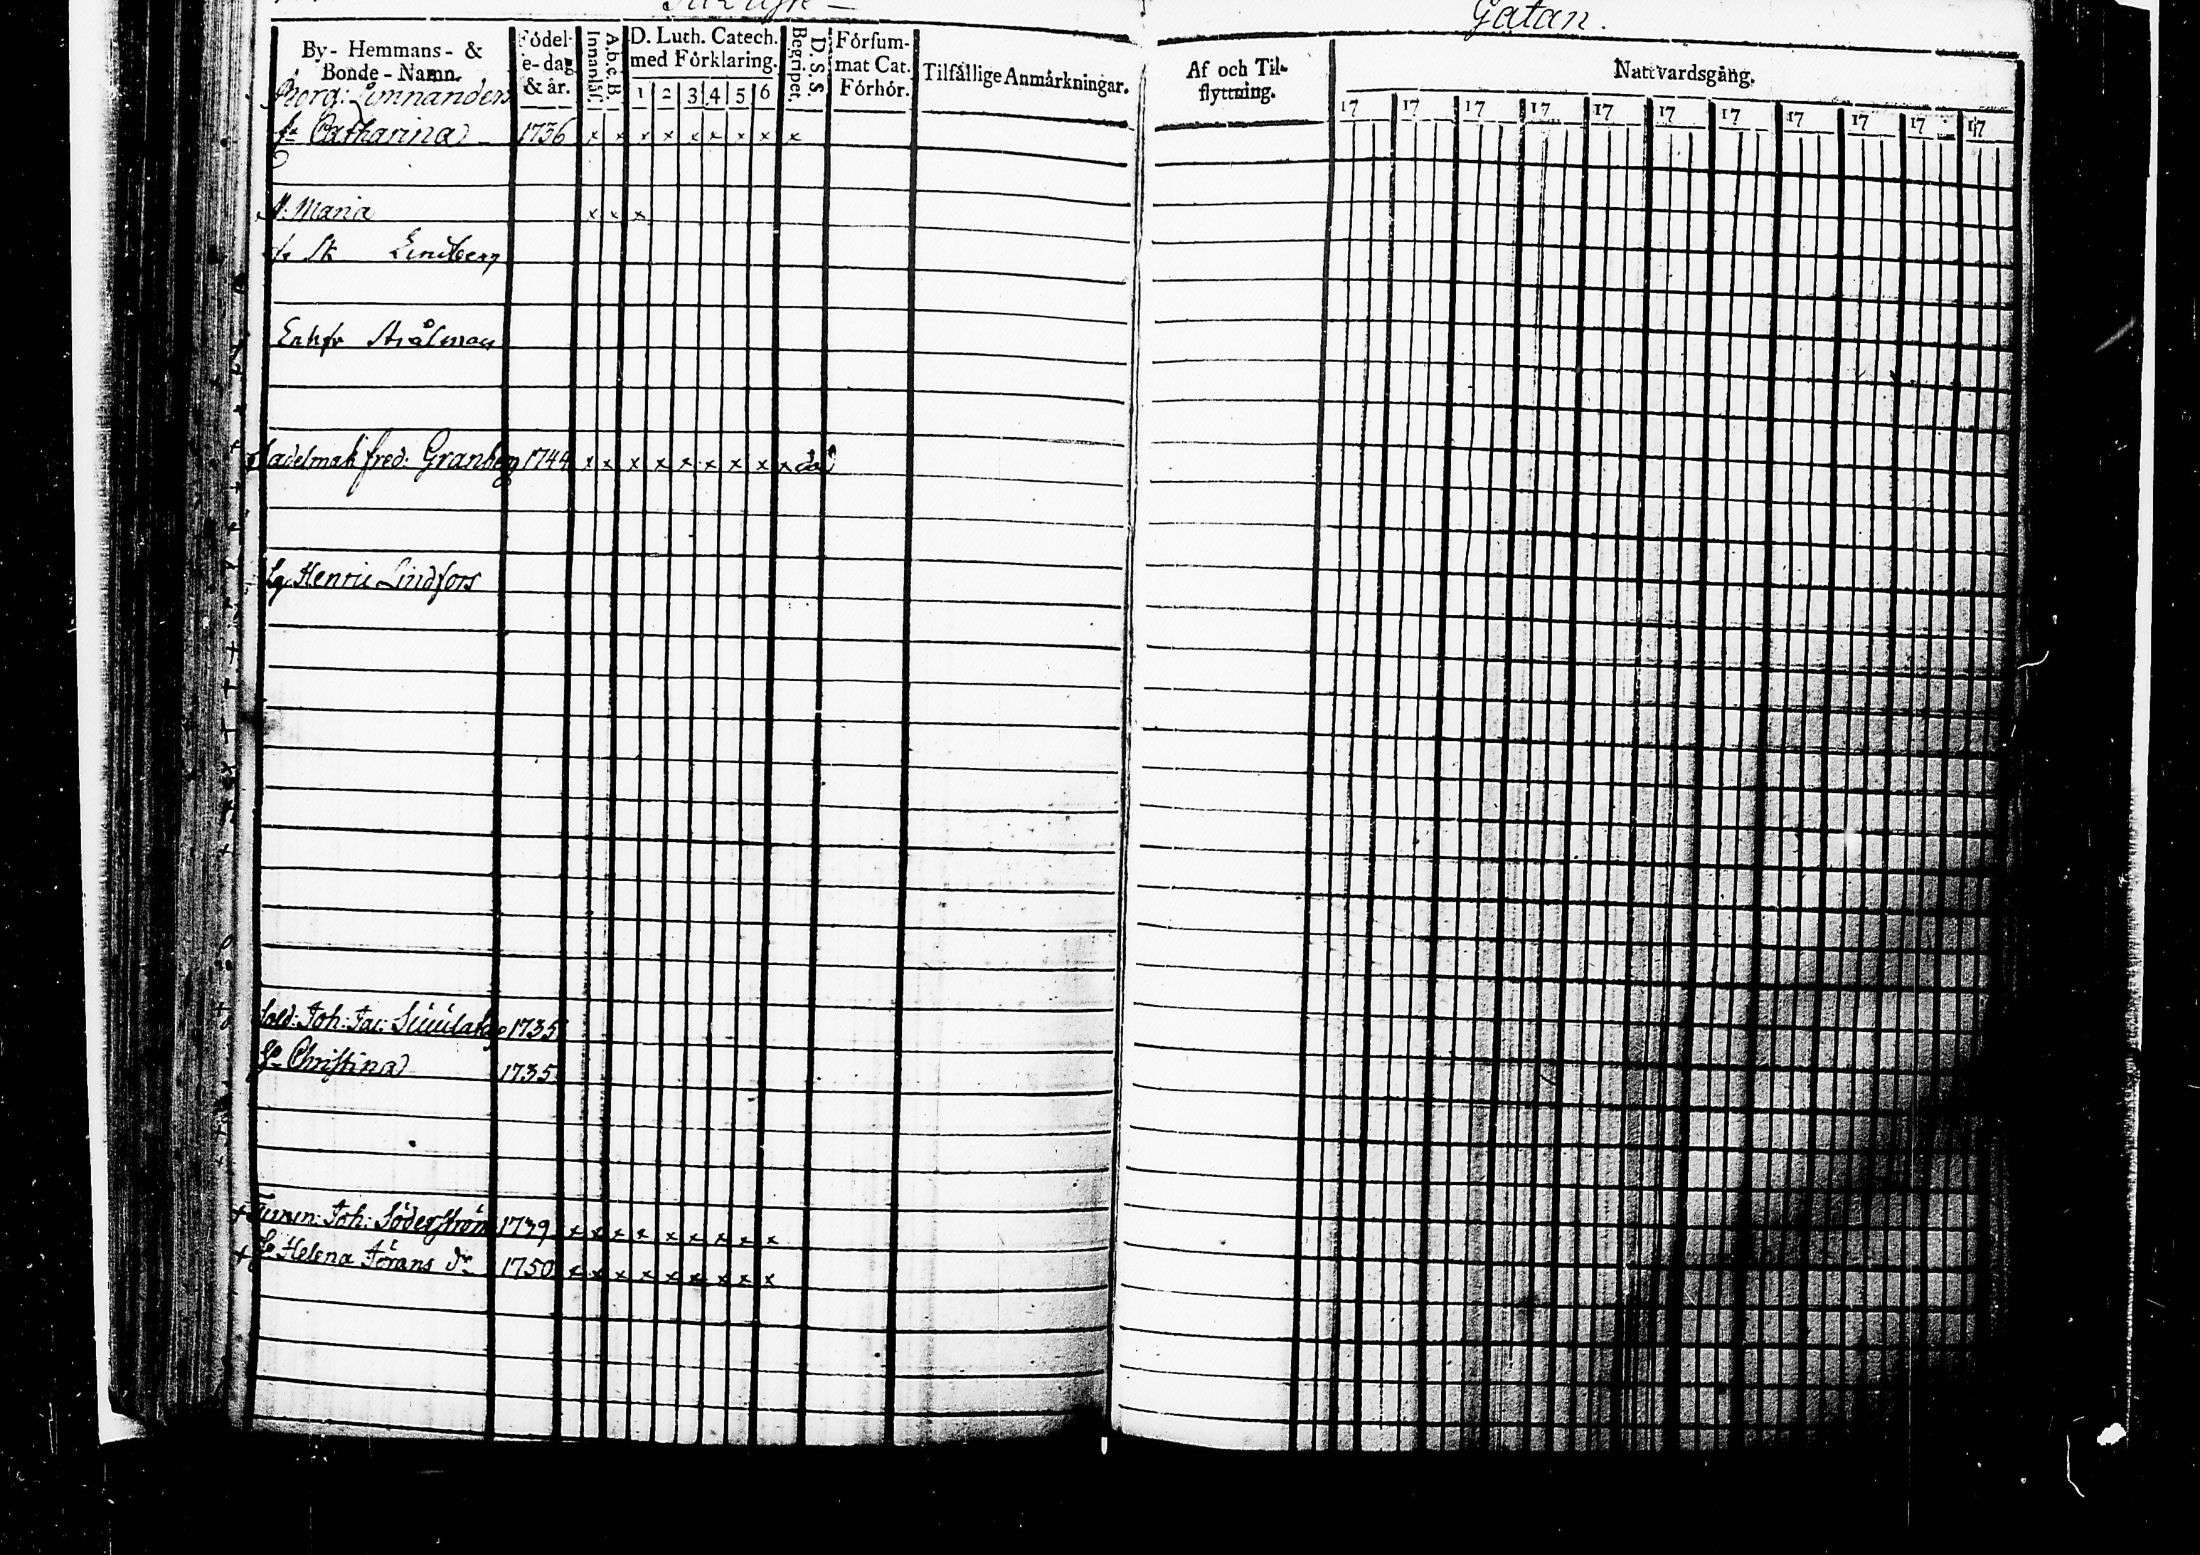 Gatan.
By- Hemmans- &
Bonde-Namn.
Födel-
e-dag
& år.
Innanläs.
A.b.c.B.
D. Luth. Catech.
med Förklaring.
1 2 3 4 5 6
Begripet.
D.S.S.
Försum-
mat Cat.
Förhör.
Tilfällige Anmärkningar.
Af och Til-
flyttning.
Nattvardsgång.
17 17 17 17 17 17 17 17 17 17 17
Borg: Limnanders
Catharina 1736 x x x x x x x x x
Maria x x x
Lindberg
Enkfr Stålman
Sadelmak fred: Granberg 1744 x x x x x x x x x
Henric Lindfors
Sold: Joh: Jac: 1735
Christina 1735
+ Timm: Joh: Söderström 1739 x x x x x x x x
+ Helena Jörans dr 1750 x x x x x x x x x